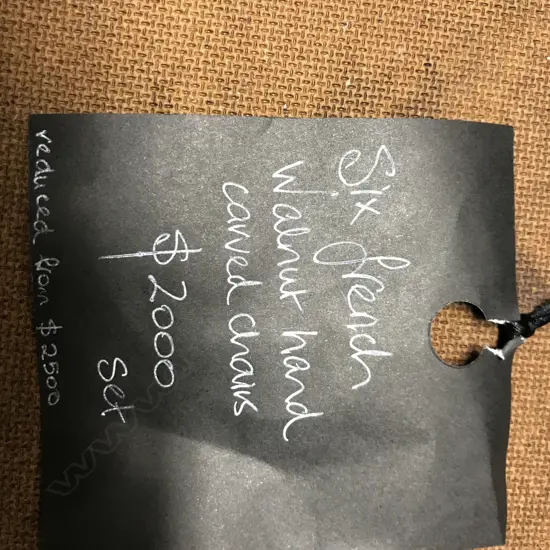 Six french
Walnut hand
carved chairs
$2000
Set
reduced from $2500